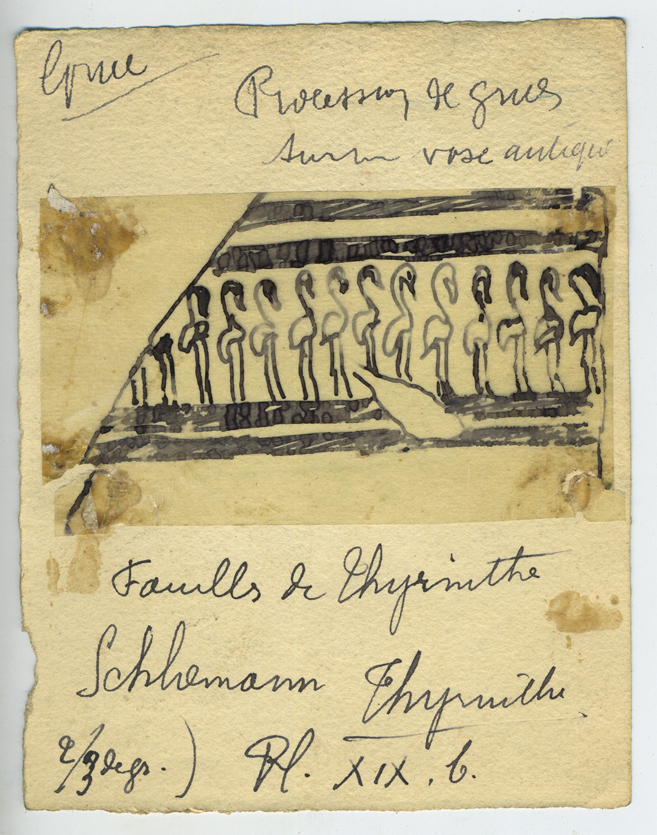 Grue
Procession de grues
sur un vase antique
Fouills de Thyrinthe
Schliemann Thyrinthe
2/3 degr.) Pl. XIX. b.